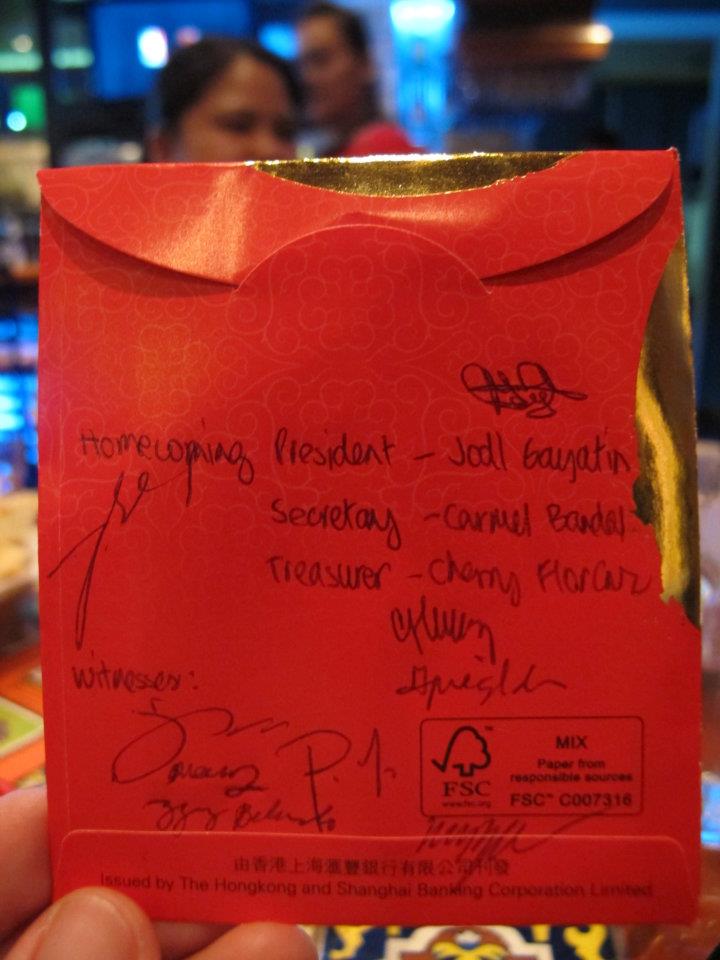 Homecoming President - Jodl Gayatin
Secretary - Carmel Bandal
Treasurer - Cherry Flor Cruz
witnesses:
FSC™
www.fsc.org
MIX
Paper from
responsible sources
FSC™ C007316
由香港上海滙豐銀行有限公司刊發
Issued by The Hongkong and Shanghai Banking Corporation Limited